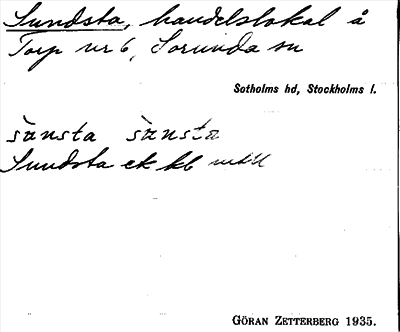 Sundsta, handelslokal å
Torp nr 6, Sorunda sn
Sotholms hd, Stockholms l.
sànsta sànsta
Sundsta ek kb
GÖRAN ZETTERBERG 1935.